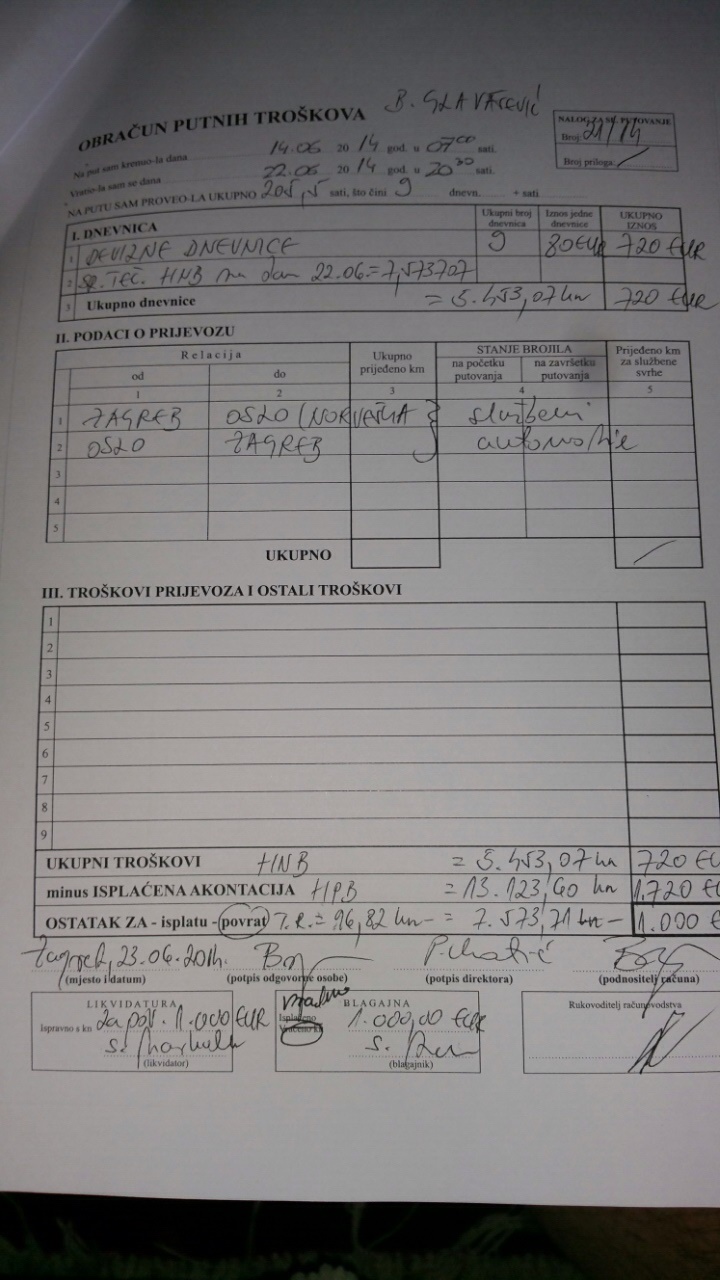 OBRAČUN PUTNIH TROŠKOVA B. GLAVAČEVIĆ
NALOG ZA SL. PUTOVANJE
Broj: 21/14
Broj priloga: /
Na put sam krenuo-la dana 14.06 20 14 god. u 07 00 sati.
Vratio-la sam se dana 22.06 20 14 god. u 20 30 sati.
NA PUTU SAM PROVEO-LA UKUPNO 205,5 sati, što čini 9 dnevn. + sati
I. DNEVNICA Ukupni broj dnevnica Iznos jedne dnevnice UKUPNO IZNOS
1 DEVIZNE DNEVNICE 9 80 EUR 720 EUR
2 SR. TEČ. HNB na dan 22.06.=7,573707
3 Ukupno dnevnice = 5.453,07 kn 720 EUR
II. PODACI O PRIJEVOZU
Relacija Ukupno prijeđeno km STANJE BROJILA Prijeđeno km za službene svrhe
od do na početku putovanja na završetku putovanja
1 2 3 4 5
1 ZAGREB OSLO (NORVEŠKA } službeni
2 OSLO ZAGREB automobile
3
4
5
UKUPNO /
III. TROŠKOVI PRIJEVOZA I OSTALI TROŠKOVI
1
2
3
4
5
6
7
8
9
UKUPNI TROŠKOVI HNB = 5.453,07 kn 720 EU
minus ISPLAĆENA AKONTACIJA HPB = 13.123,60 kn 1.720 EU
OSTATAK ZA - isplatu - povrat T.R. = 96,82 kn - = 7.573,71 kn - 1.000 €
Zagreb, 23.06.2014.
(mjesto i datum) (potpis odgovorne osobe) (potpis direktora) (podnositelj računa)
LIKVIDATURA
Ispravno s kn za pov. 1.000 EUR
(likvidator)
BLAGAJNA
Isplaćeno
Vraćeno kn 1.000,00 EUR
(blagajnik)
Rukovoditelj računovodstva